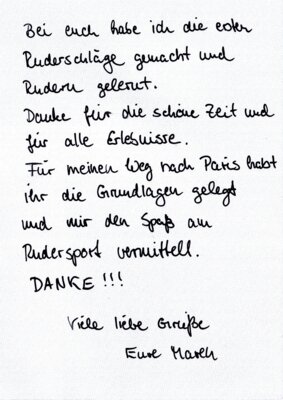 Bei euch habe ich die ersten
Ruderschläge gemacht und
Rudern gelernt.
Danke für die schöne Zeit und
für alle Erlebnisse.
Für meinen Weg nach Paris habt
ihr die Grundlagen gelegt
und mir den Spaß am
Rudersport vermittelt.
DANKE!!!
Viele liebe Grüße
Eure